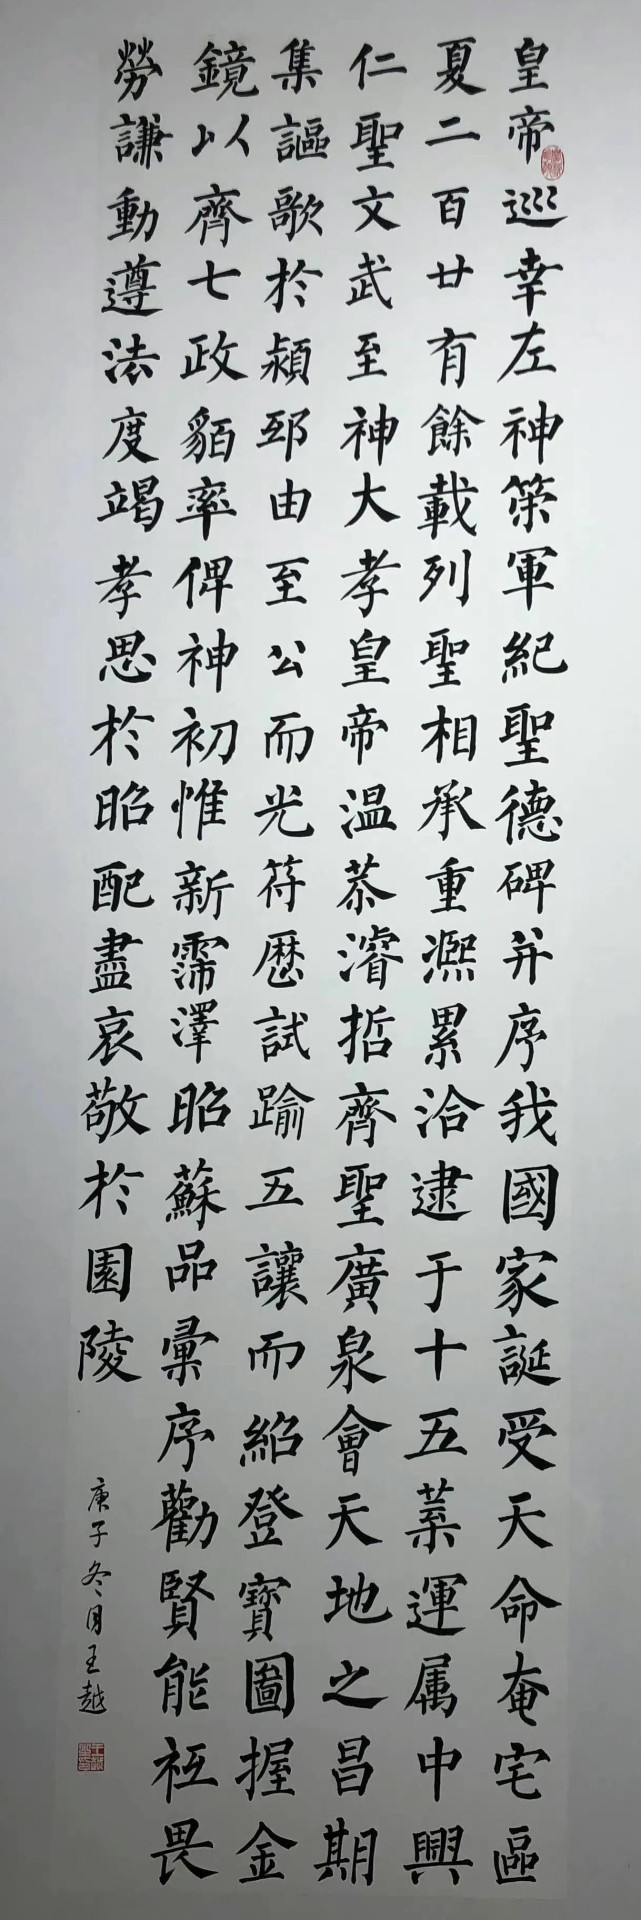 皇帝巡幸左神策軍紀聖德碑并序我國家誕受天命奄宅區
夏二百廿有餘載列聖相承重熈累洽逮于十五葉運属中興
仁聖文武至神大孝皇帝温恭濬哲齊聖廣泉會天地之昌期
集謳歌於潁邳由至公而光符歷試踰五讓而紹登寶圖握金
鏡以齊七政貊率俾神初惟新霈澤昭蘇品彙序勸賢能祗畏
勞謙動遵法度竭孝思於昭配盡哀敬於園陵
庚子冬月王越